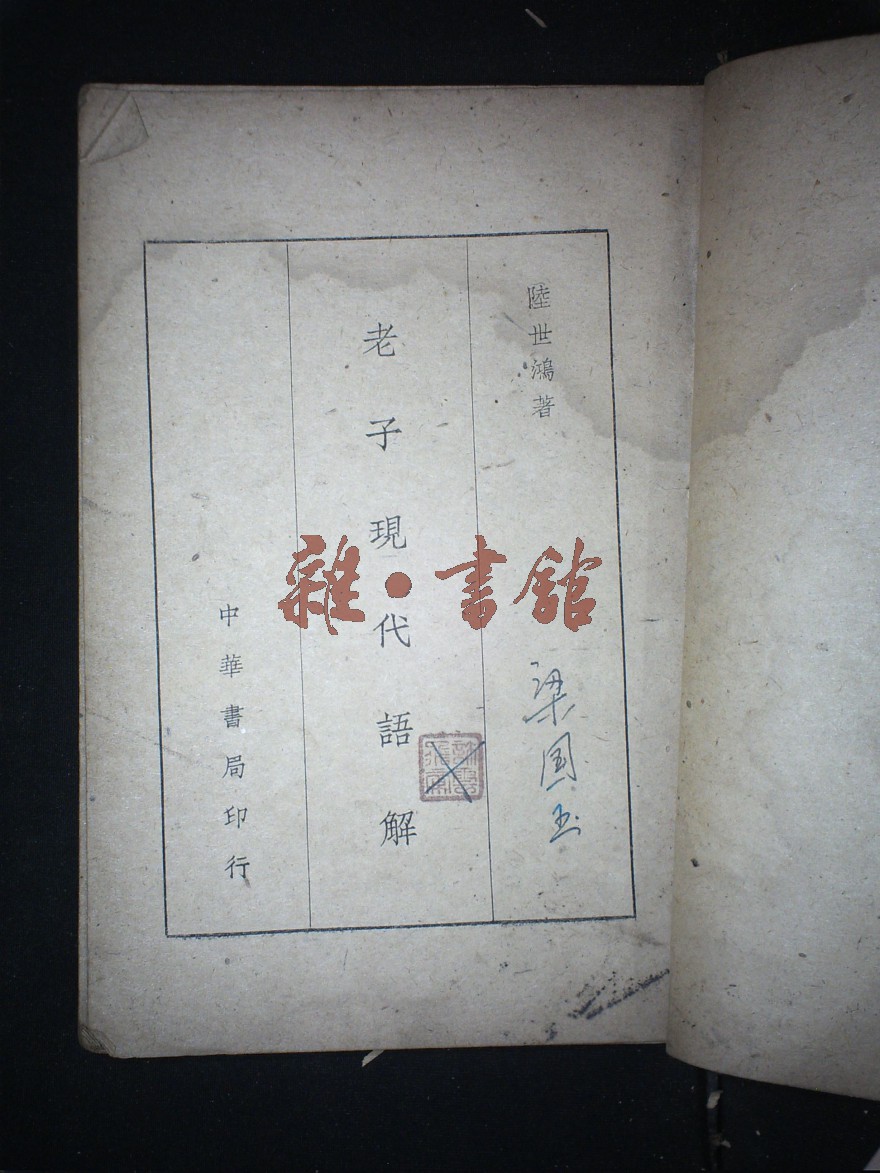 陸世鴻著
老子現代語解
中華書局印行
梁国玉
雜·書館